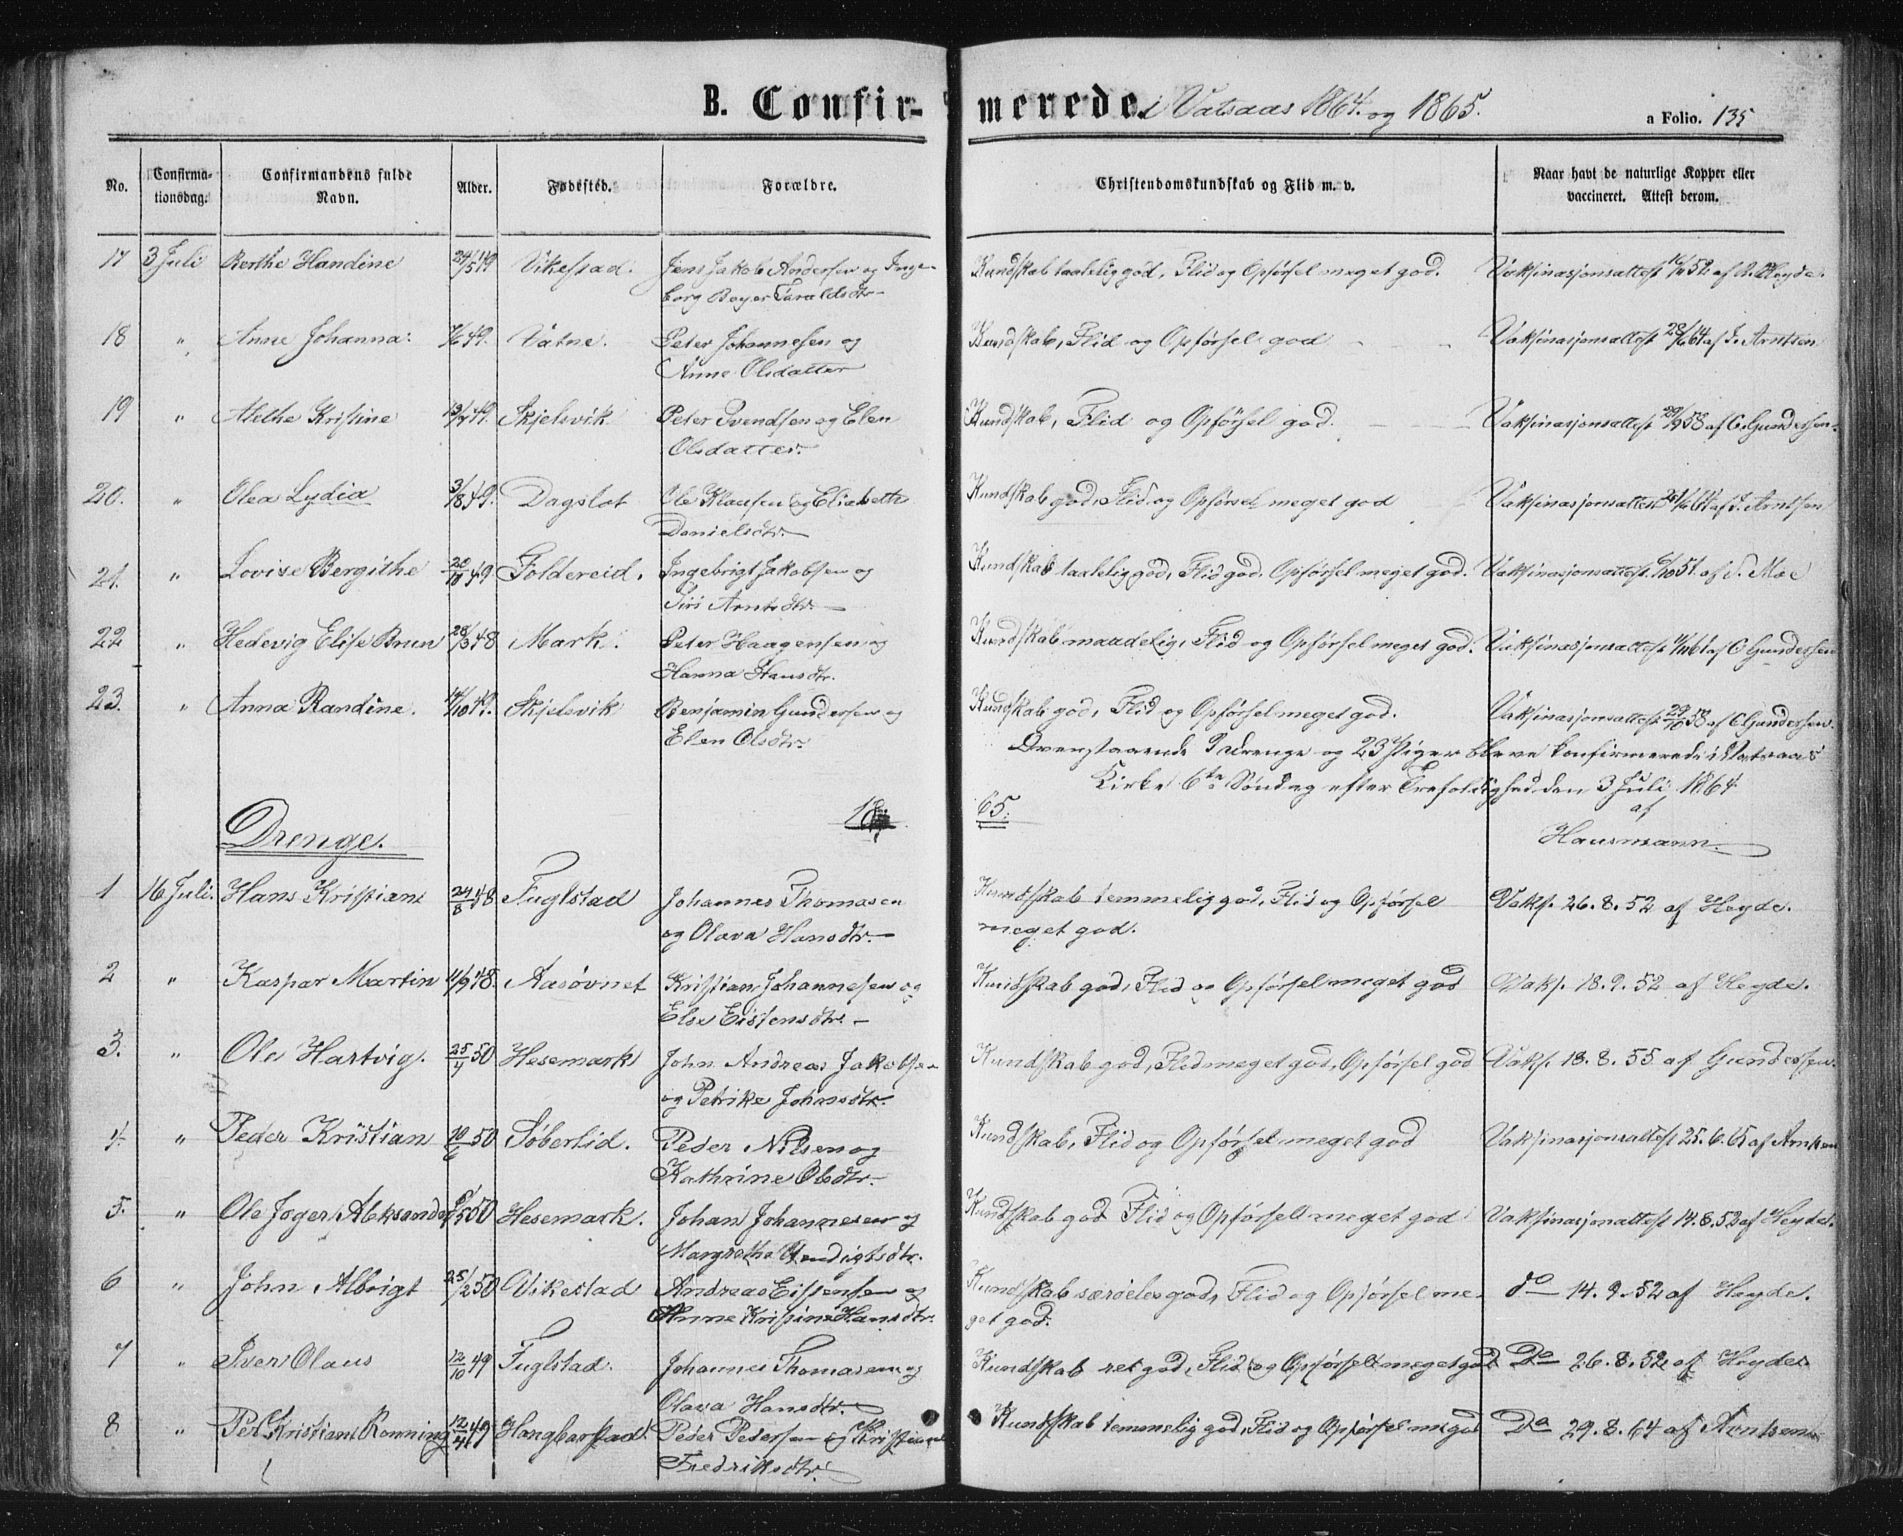 B. Confirmerede. i Vatsaas 1864. og 1865. a Folio. 135
No. Confirmationsdag. Confirmandens fulde Navn. Alder. Fødested. Forældre. Christendomskundskab og Flid m. v. Naar havt de naturlige Kopper eller vaccineret. Attest derom.
17 3 Juli Berthe Handine 24/5 49 Vikestad. Jens Jakob Andersen og Inge- Kundskab taalelig god, Flid og Opførsel meget god. Vaksinasjonsattest 52 af Heyde.
borg Beyer Taraldsdtr
18 " Anne Johanna. 7/6 49. Vatne. Peter Johannesen og Kundskab, Flid og Opførsel god Vaksinasjonsattest 28/6 64 af J. Arntsen
Anne Olsdatter
19 " Methe Kristine 13/7 49. Skjelsvik Peter Svendsen og Elen Kundskab, Flid og Opførsel god. Vaksinasjonsattest 29/9 58 af C. Gundersen
Olsdatter.
20. " Olea Lydia 3/8 49. Dagslot Ole Klausen og Elisabeth Kundskab god, Flid og Opførsel meget god Vaksinasjonsattest 64 af J. Arntsen
Danielsdtr.
21. " Lovise Bergithe 20/10 49 Foldereid. Ingebrigt Jakobsen og Kundskab taalelig god, Flid god. Opførsel meget god. Vaksinasjonsattest 6/10 51. af S. Moe
Siri Arntsdtr.
22 " Hedevig Elise Brun 28/3 48 Mark. Peter Haagensen og Kundskab maadelig, Flid og Opførsel meget god. Vaksinasjonsattest 61 af C Gundersen
Hanna Hansdtr.
23. " Anna Randine. 14/10 49. Skjelsvik Benjamin Gundersen og Kundskab god, Flid og Opførsel meget god. Vaksinasjonsattest 29/10 58 af C Gundersen.
Elen Olsdtr.
Ovenstaaende 9 drenge og 23 Piger bleve konfirmerede i Vatsaas
Kirke 6te Søndag efter Trefoldighed, den 3 Juli 1864
af
Hausmann.
18 65.
Drenge.
1 16 Juli. Hans Kristian 24/8 48 Fuglstad Johannes Thomasen Kundskab temmelig god, Flid og Opførsel Vaks. 26. 8. 52 af Heyde.
og Olava Hansdtr. meget god.
2 " Kaspar Martin 11/9 48. Aasøvnet Kristian Johannesen og Kundskab god, Flid og Opførsel meget god Vaks. 18. 9. 52 af Heyde.
Else Eistensdtr.
3. " Ole Hartvig. 25/4 50 Hesemark John Andreas Jakobsen Kundskab god, Flid meget god, Opførsel god Vaks. 18. 8. 55 af Gundersen.
og Petrike Johnsdtr.
4. " Peder Kristian 10/6 50 Soberlid. Peder Nilsen og Kundskab, Flid og Opførsel meget god Vaksinasjonsattest 25. 6. 65 af Arntsen
Kathrine Olsdtr.
5. " Ole Joger Aleksander 50 Hesemark. Johan Johannesen og Kundskab god Flid og Opførsel meget god Vaksinasjonsattest 14. 8. 52 af Heyde.
Margrethe
6 " John Albrigt 25/2 50 Vikestad Andreas Eistensen og Kundskab særdeles god, Flid og Opførsel me- do 14. 9. 52 af Heyde.
Anne Kristine Hansdtr. get god.
7 " Iver Olaus 12/10 49 Fuglstad. Johannes Thomasen og Kundskab ret god, Flid og Opførsel meget god Do 26. 8. 52 af Heyde
Olava Hansdtr.
8 " Per Kristian Rønning 12/4 49 Hanglarstad. Peder Pedersen og Kundskab temmelig god, Flid og Opførsel m god Do 29. 8. 64 af Arntsen
Fredriksdtr.